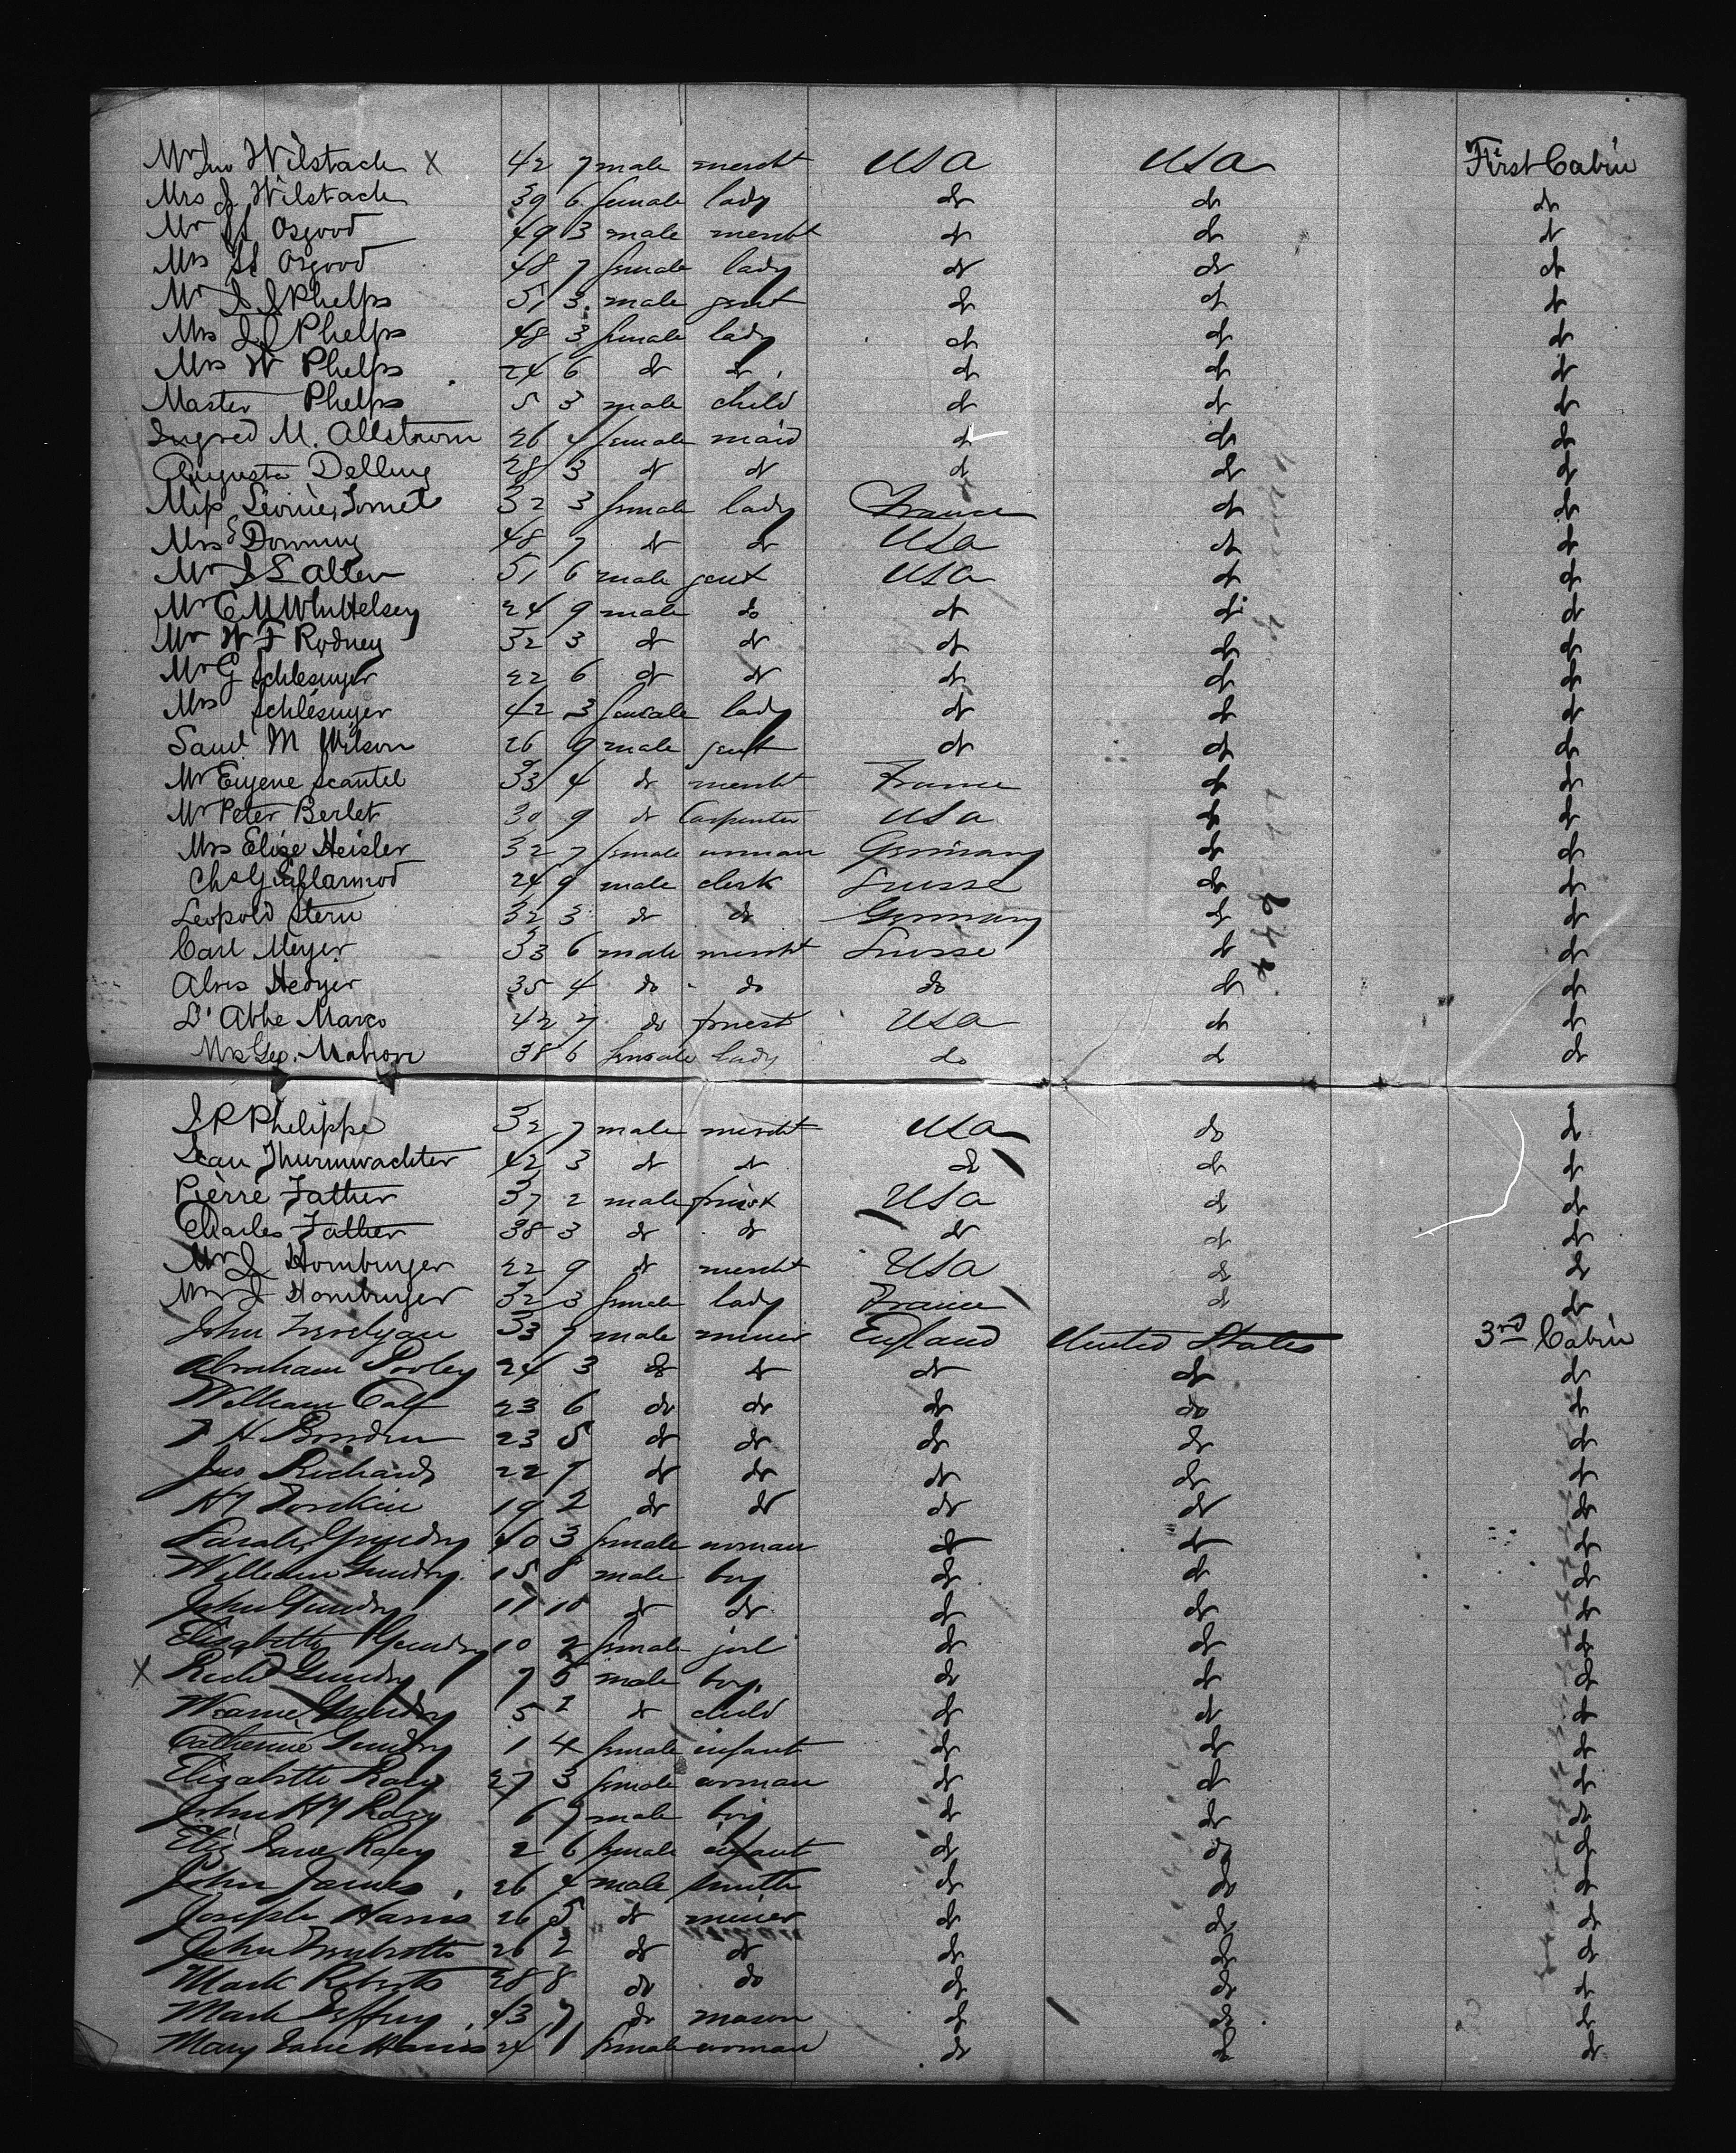 Mr Jno Wilstach X 42 7 male mercht USA USA First Cabin
Mrs J. Wilstach 39 6 female lady do do do
Mr Osgood 49 3 male mercht do do do
Mrs Osgood 48 7 female lady do do do
Mr J J Phelps 51 3 male gent do do do
Mrs J J Phelps 48 3 female lady do do do
Mrs W Phelps 24 6 do do do do do
Master Phelps 5 3 male child do do do
Ingred M. Allstrom 26 4 female maid do do do
Augusta Delling 28 3 do do do do do
Miss Léonie 32 3 female lady France do do
Mrs Downing 48 7 do do USA do do
Mr J S Allen 51 6 male gent USA do do
Mr C M Whittelsey 24 9 male do do do do
Mr W F Rodney 32 3 do do do do do
Mr G Schlesinger 22 6 do do do do do
Mrs Schlesinger 42 3 female lady do do do
Saml M Wilson 26 9 male gent do do do
Mr Eugene Scantel 33 4 do mercht France do do
Mr Peter Berlet 30 9 do Carpenter USA do do
Mrs Elise Heisler 32 7 female woman Germany do do
Chs Guillarmod 24 9 male clerk Suisse do do
Leopold Stern 32 3 do do Germany do do
Carl Meyer 33 6 male mercht Suisse do do
Alois Hedger 35 4 do do do do do
L'Abbe Marco 42 7 do priest USA do do
Mrs Geo. Mahon 38 6 female lady do do do
J R Philippe 32 7 male mercht USA do do
Jean Thurmwachter 42 3 do do do do do
Pierre Father 37 2 male priest USA do do
Charles Father 38 3 do do do do do
Mr J Homburger 22 9 do mercht USA do do
Mrs J Homburger 32 3 female lady France do do
John 33 7 male miner England United States 3rd Cabin
Abraham Pooley 24 3 do do do do do
William 23 6 do do do do do
23 5 do do do do do
Jas Richards 22 7 do do do do do
Hy 19 2 do do do do do
Sarah Gundry 40 3 female woman do do do
William Gundry 15 8 male boy do do do
John Gundry 11 10 do do do do do
Elizabeth Gundry 10 2 female girl do do do
X Richd Gundry 7 5 male boy do do do
Gundry 5 2 do child do do do
Catherine Gundry 1 4 female infant do do do
Elizabeth 27 3 female woman do do do
John Hy 6 7 male boy do do do
Eliz Jane 2 6 female infant do do do
John James 26 4 male smith do do do
Joseph Harris 26 5 do miner do do do
John 26 2 do do do do do
Mark Roberts 28 8 do do do do do
Mark Jeffrey 43 7 do mason do do do
Mary Jane Harris 24 11 female woman do do do